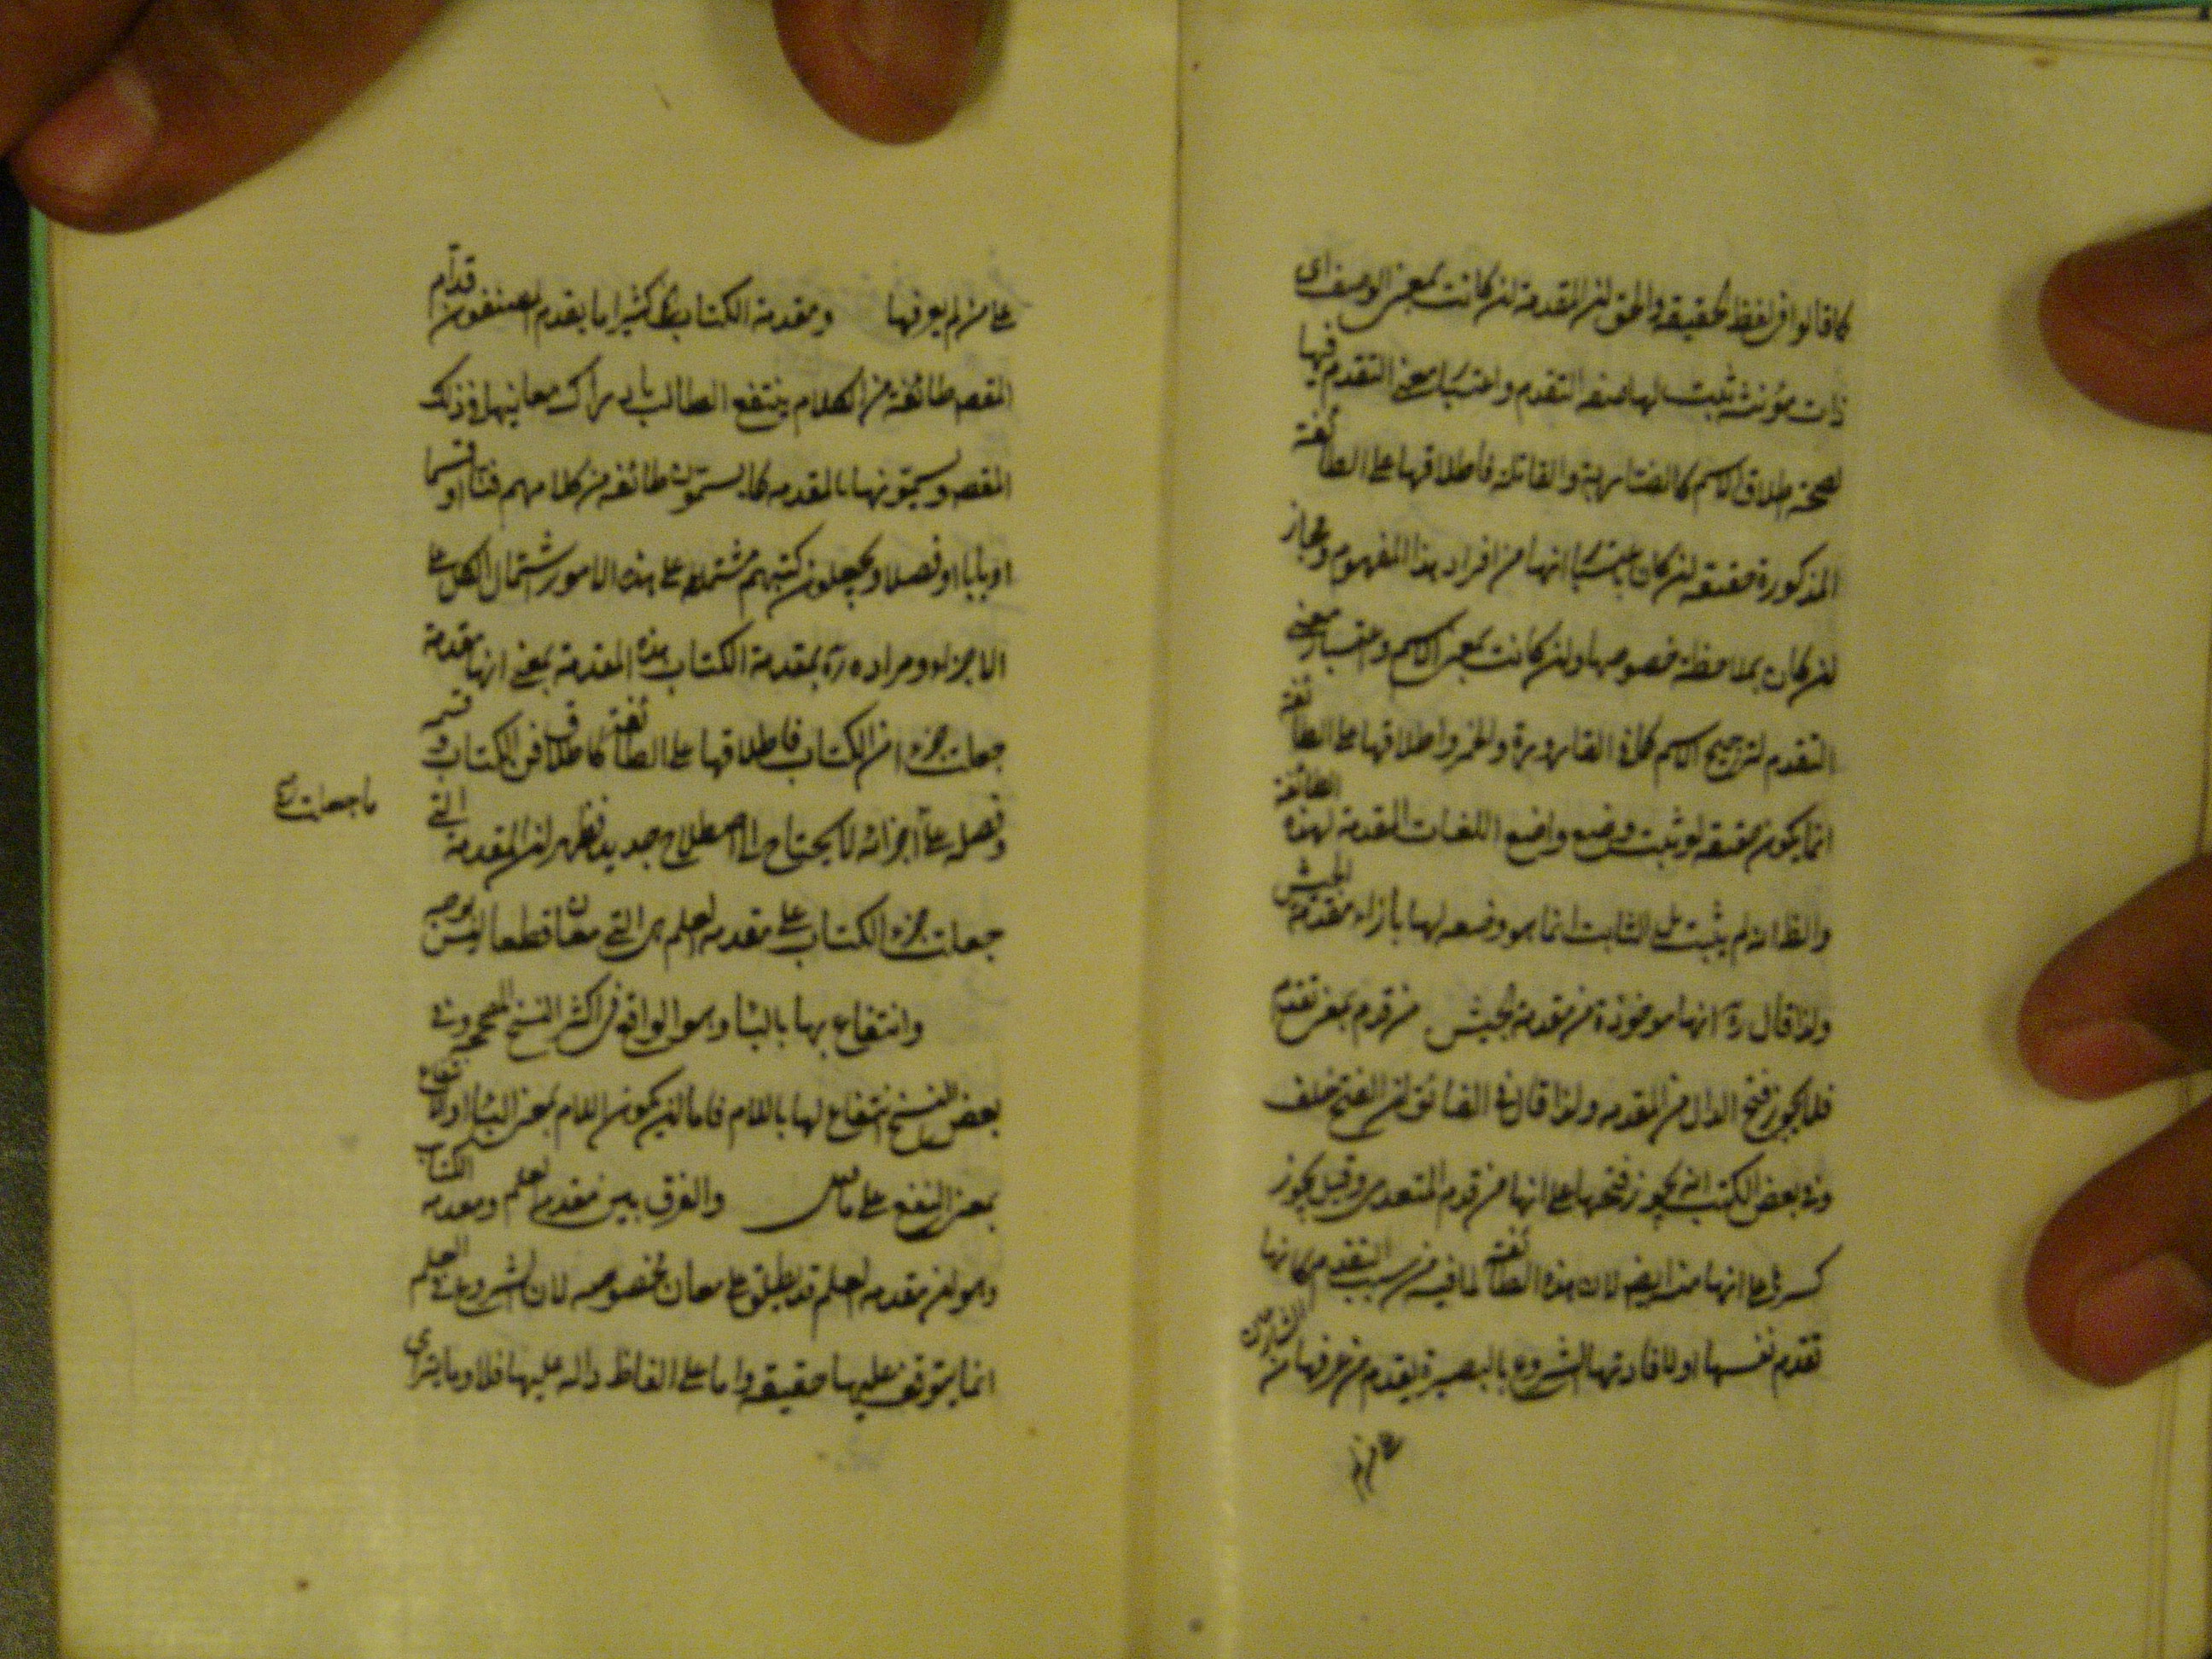 كما قالوا في لفظ الحقيقة والحق ان المقدمة ان كانت بمعنى الوصف اى
ذات مؤنث ثبت لها صفة التقدم واعتبار معنى التقدم فيها
لصحة اطلاق الاسم كالضاربة والقاتلة فاطلاقها على الطائفة
المذكورة حقيقة ان كان باعتبار انها من افراد هذا المفهوم ومجاز
ان كان بملاحظة خصوصها وان كانت بمعنى الاسم واعتبار معنى
التقدم لترجيح الاسم كما في القارورة والخمر واطلاقها على الطائفة
انما يكون حقيقة لو ثبت وضع واضع اللغات المقدمة لهذه الطائفة
والظ انه لم يثبت بل الثابت انما هو وضعه لها بازاء مقدمة الجيش
ولذا قال ره انها مأخوذة من مقدمة الجيش من قدم بمعنى تقدم
فلا يجوز فتح الدال من المقدمه ولذا قال في الفائق ان الفتح خلف
وفي بعض الكتب انه يجوز فتحها على انها من قدم المتعدى وقيل يجوز
كسرها على انها منه ايض لان هذه الطائفة لما فيه من سبب التقدم كانها
تقدم نفسها او لافادتها الشروع بالبصيرة يقدم من عرفها من الشارعين
على من لم
على من لم يعرفها ومقدمة الكتاب كثيرا ما يقدم المصنفون قدام
المقصد طائفة من الكلام ينتفع الطالب بادراك معانيها في ذلك
المقصد ويسمونها بالمقدمه كما يسمون طائفه من كلامهم فنا او قسما
او بابا او فصلا ويجعلون كتبهم مشتملة على هذه الامور اشتمال الكل على
الاجزاء ومراده ره بمقدمة الكتاب هذه المقدمة بمعنى انها مقدمة
جعلت جزء من الكتاب فاطلاقها على الطائفة كاطلاق فن الكتاب وقسمه
وفصله على اجزائه لا يحتاج الى اصطلاح جديد فظهر ان المقدمة التى
ما جعلت
جعلت جزء الكتاب على مقدمه العلم هى التي معان قطعا ليس يوجبه
وانتفاع بها بالباء وهو الواقع في اكثر النسخ المصححه وفي
بعض النسخ انتفاع لها باللام فاما ان يكون اللام بمعنى الباء او الانتفاع
بمعنى النفع على ما قيل والفرق بين مقدمة العلم ومقدمه الكتاب
وهو ان مقدمه العلم قد يطلق على معان مخصوصه لان الشروع في العلم
انما يتوقف عليها حقيقة واما على الفاظ داله عليها فلا وما